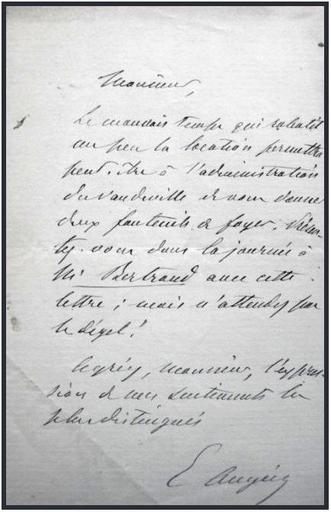 Monsieur,
Le mauvais temps qui ralentit
un peu la location permettra
peut-être à l'administration
du Vaudeville de vous donner
deux fauteuils de foyer. Présen
tez-vous dans la journée à
Mr Bertrand avec cette
lettre ; mais n'attendez pas
le dégel !
Agréez, Monsieur, l'expres
sion de mes sentiments les
plus distingués
E Augier